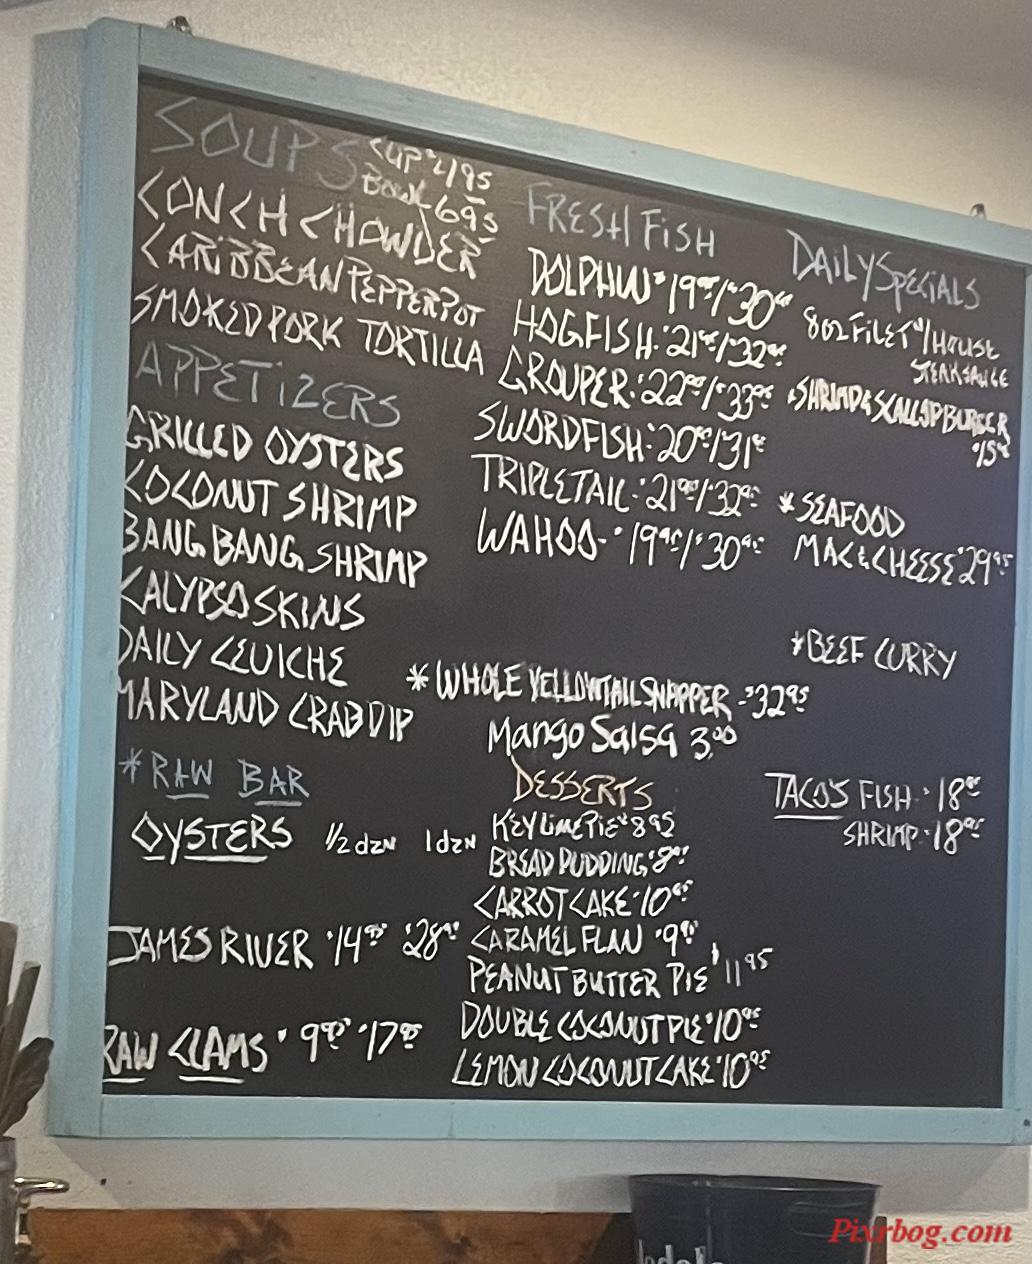 SOUPS CUP $4.95
BOWL 6.95
CONCH CHOWDER
CARIBBEAN PEPPERPOT
SMOKED PORK TORTILLA
APPETIZERS
GRILLED OYSTERS
COCONUT SHRIMP
BANG BANG SHRIMP
CALYPSO SKINS
DAILY CEVICHE
MARYLAND CRAB DIP
*RAW BAR
OYSTERS 1/2 dzN 1 dzN
JAMES RIVER $14.95 $28.95
RAW CLAMS $9.95 $17.95
FRESH FISH
DOLPHIN $19.95/$30.95
HOGFISH $21.95/$32.95
GROUPER $22.95/$33.95
SWORDFISH $20.95/$31.95
TRIPLETAIL $21.95/$32.95
WAHOO- $19.95/$30.95
* WHOLE YELLOWTAIL SNAPPER - $32.95
Mango Salsa 3.00
DESSERTS
KEY LIME PIE $8.95
BREAD PUDDING $8.95
CARROT CAKE $10.95
CARAMEL FLAN $9.95
PEANUT BUTTER PIE $11.95
DOUBLE COCONUT PIE $10.95
LEMON COCONUT CAKE $10.95
DAILY SPECIALS
8OZ FILET W/HOUSE
STEAK SAUCE
*SHRIMP & SCALLOP BURGER
$15.95
*SEAFOOD
MAC & CHEESE $29.95
*BEEF CURRY
TACOS FISH $18.95
SHRIMP $18.95
Pixrbog.com